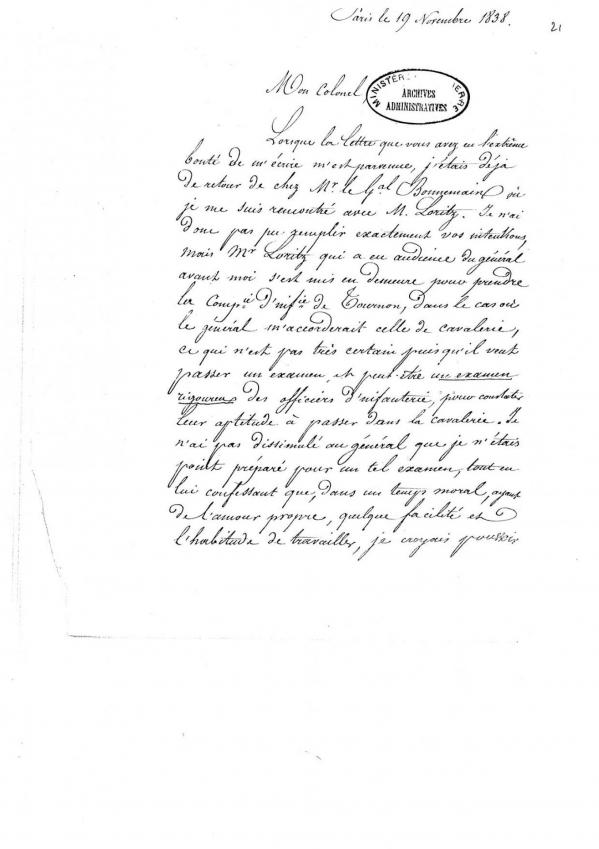 Paris le 19 Novembre 1838.
21
Mon Colonel,
MINISTÈRE GUERRE
ARCHIVES
ADMINISTRATIVES
Lorsque la lettre que vous avez eu l'extrême
bonté de m'écrire m'est parvenue, j'étais déjà
de retour de chez Mr. le Gal Bonnemain où
je me suis rencontré avec M. Loritz. Je n'ai
donc pas pu remplir exactement vos intentions,
mais Mr Loritz qui a eu audience du général
avant moi s'est mis en demeure pour prendre
la Compie d'infie de Tournon, dans le cas où
le général m'accorderait celle de cavalerie,
ce qui n'est pas très certain puisqu'il veut
passer un examen, et peut-être un examen
rigoureux des officiers d'infanterie, pour constater
leur aptitude à passer dans la cavalerie. Je
n'ai pas dissimulé au général que je n'étais
point préparé pour un tel examen, tout en
lui confessant que, dans un temps moral, ayant
de l'amour propre, quelque facilité et
l'habitude de travailler, je croyais pouvoir